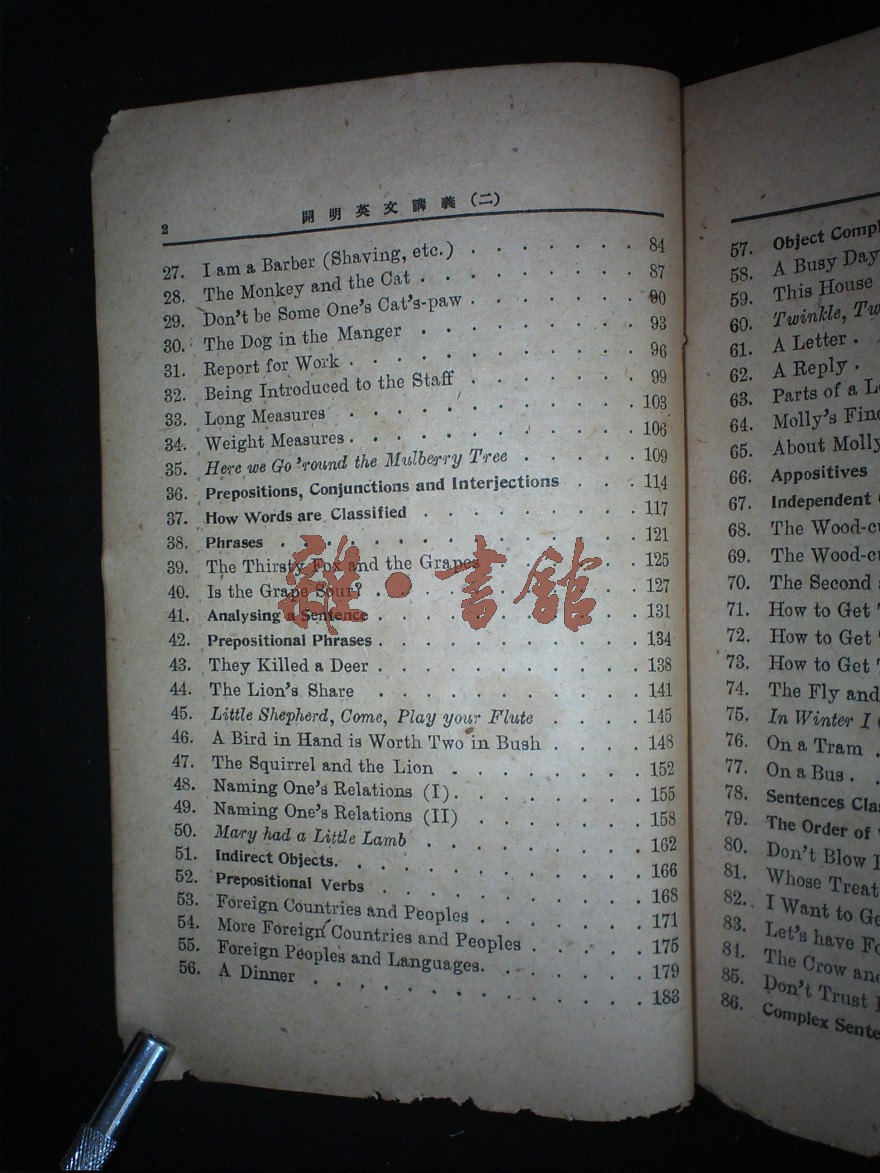 2 開明英文講義(二)
27. I am a Barber (Shaving, etc.) . . . . . . . 84
28. The Monkey and the Cat . . . . . . . . 87
29. Don't be Some One's Cat's-paw . . . . . . . 90
30. The Dog in the Manger . . . . . . . . 93
31. Report for Work . . . . . . . . . . 96
32. Being Introduced to the Staff . . . . . . . 99
33. Long Measures . . . . . . . . . . 103
34. Weight Measures . . . . . . . . . . 106
35. Here we Go 'round the Mulberry Tree . . . . . 109
36. Prepositions, Conjunctions and Interjections . . . 114
37. How Words are Classified . . . . . . . . 117
38. Phrases . . . . . . . . . . . . 121
39. The Thirsty Fox and the Grapes . . . . . . 125
40. Is the Grape Sour? . . . . . . . . . 127
41. Analysing a Sentence . . . . . . . . . 131
42. Prepositional Phrases . . . . . . . . . 134
43. They Killed a Deer . . . . . . . . . 138
44. The Lion's Share . . . . . . . . . 141
45. Little Shepherd, Come, Play your Flute . . . . 145
46. A Bird in Hand is Worth Two in Bush . . . . 148
47. The Squirrel and the Lion . . . . . . . 152
48. Naming One's Relations (I) . . . . . . . 155
49. Naming One's Relations (II) . . . . . . . 158
50. Mary had a Little Lamb . . . . . . . . 162
51. Indirect Objects. . . . . . . . . . . 166
52. Prepositional Verbs . . . . . . . . . 168
53. Foreign Countries and Peoples . . . . . . 171
54. More Foreign Countries and Peoples . . . . . 175
55. Foreign Peoples and Languages. . . . . . . 179
56. A Dinner . . . . . . . . . . . . 183
雜·書館
57. Object
58. A Busy Day
59. This House
60. Twinkle,
61. A Letter .
62. A Reply .
63. Parts of a
64. Molly's
65. About Molly
66. Appositives
67. Independent
68. The
69. The
70. The Second
71. How to Get
72. How to Get
73. How to Get
74. The Fly and
75. In Winter I
76. On a Tram .
77. On a Bus .
78. Sentences
79. The Order of
80. Don't Blow
81. Whose Treat
82. I Want to
83. Let's have
84. The Crow and
85. Don't Trust
86. Complex